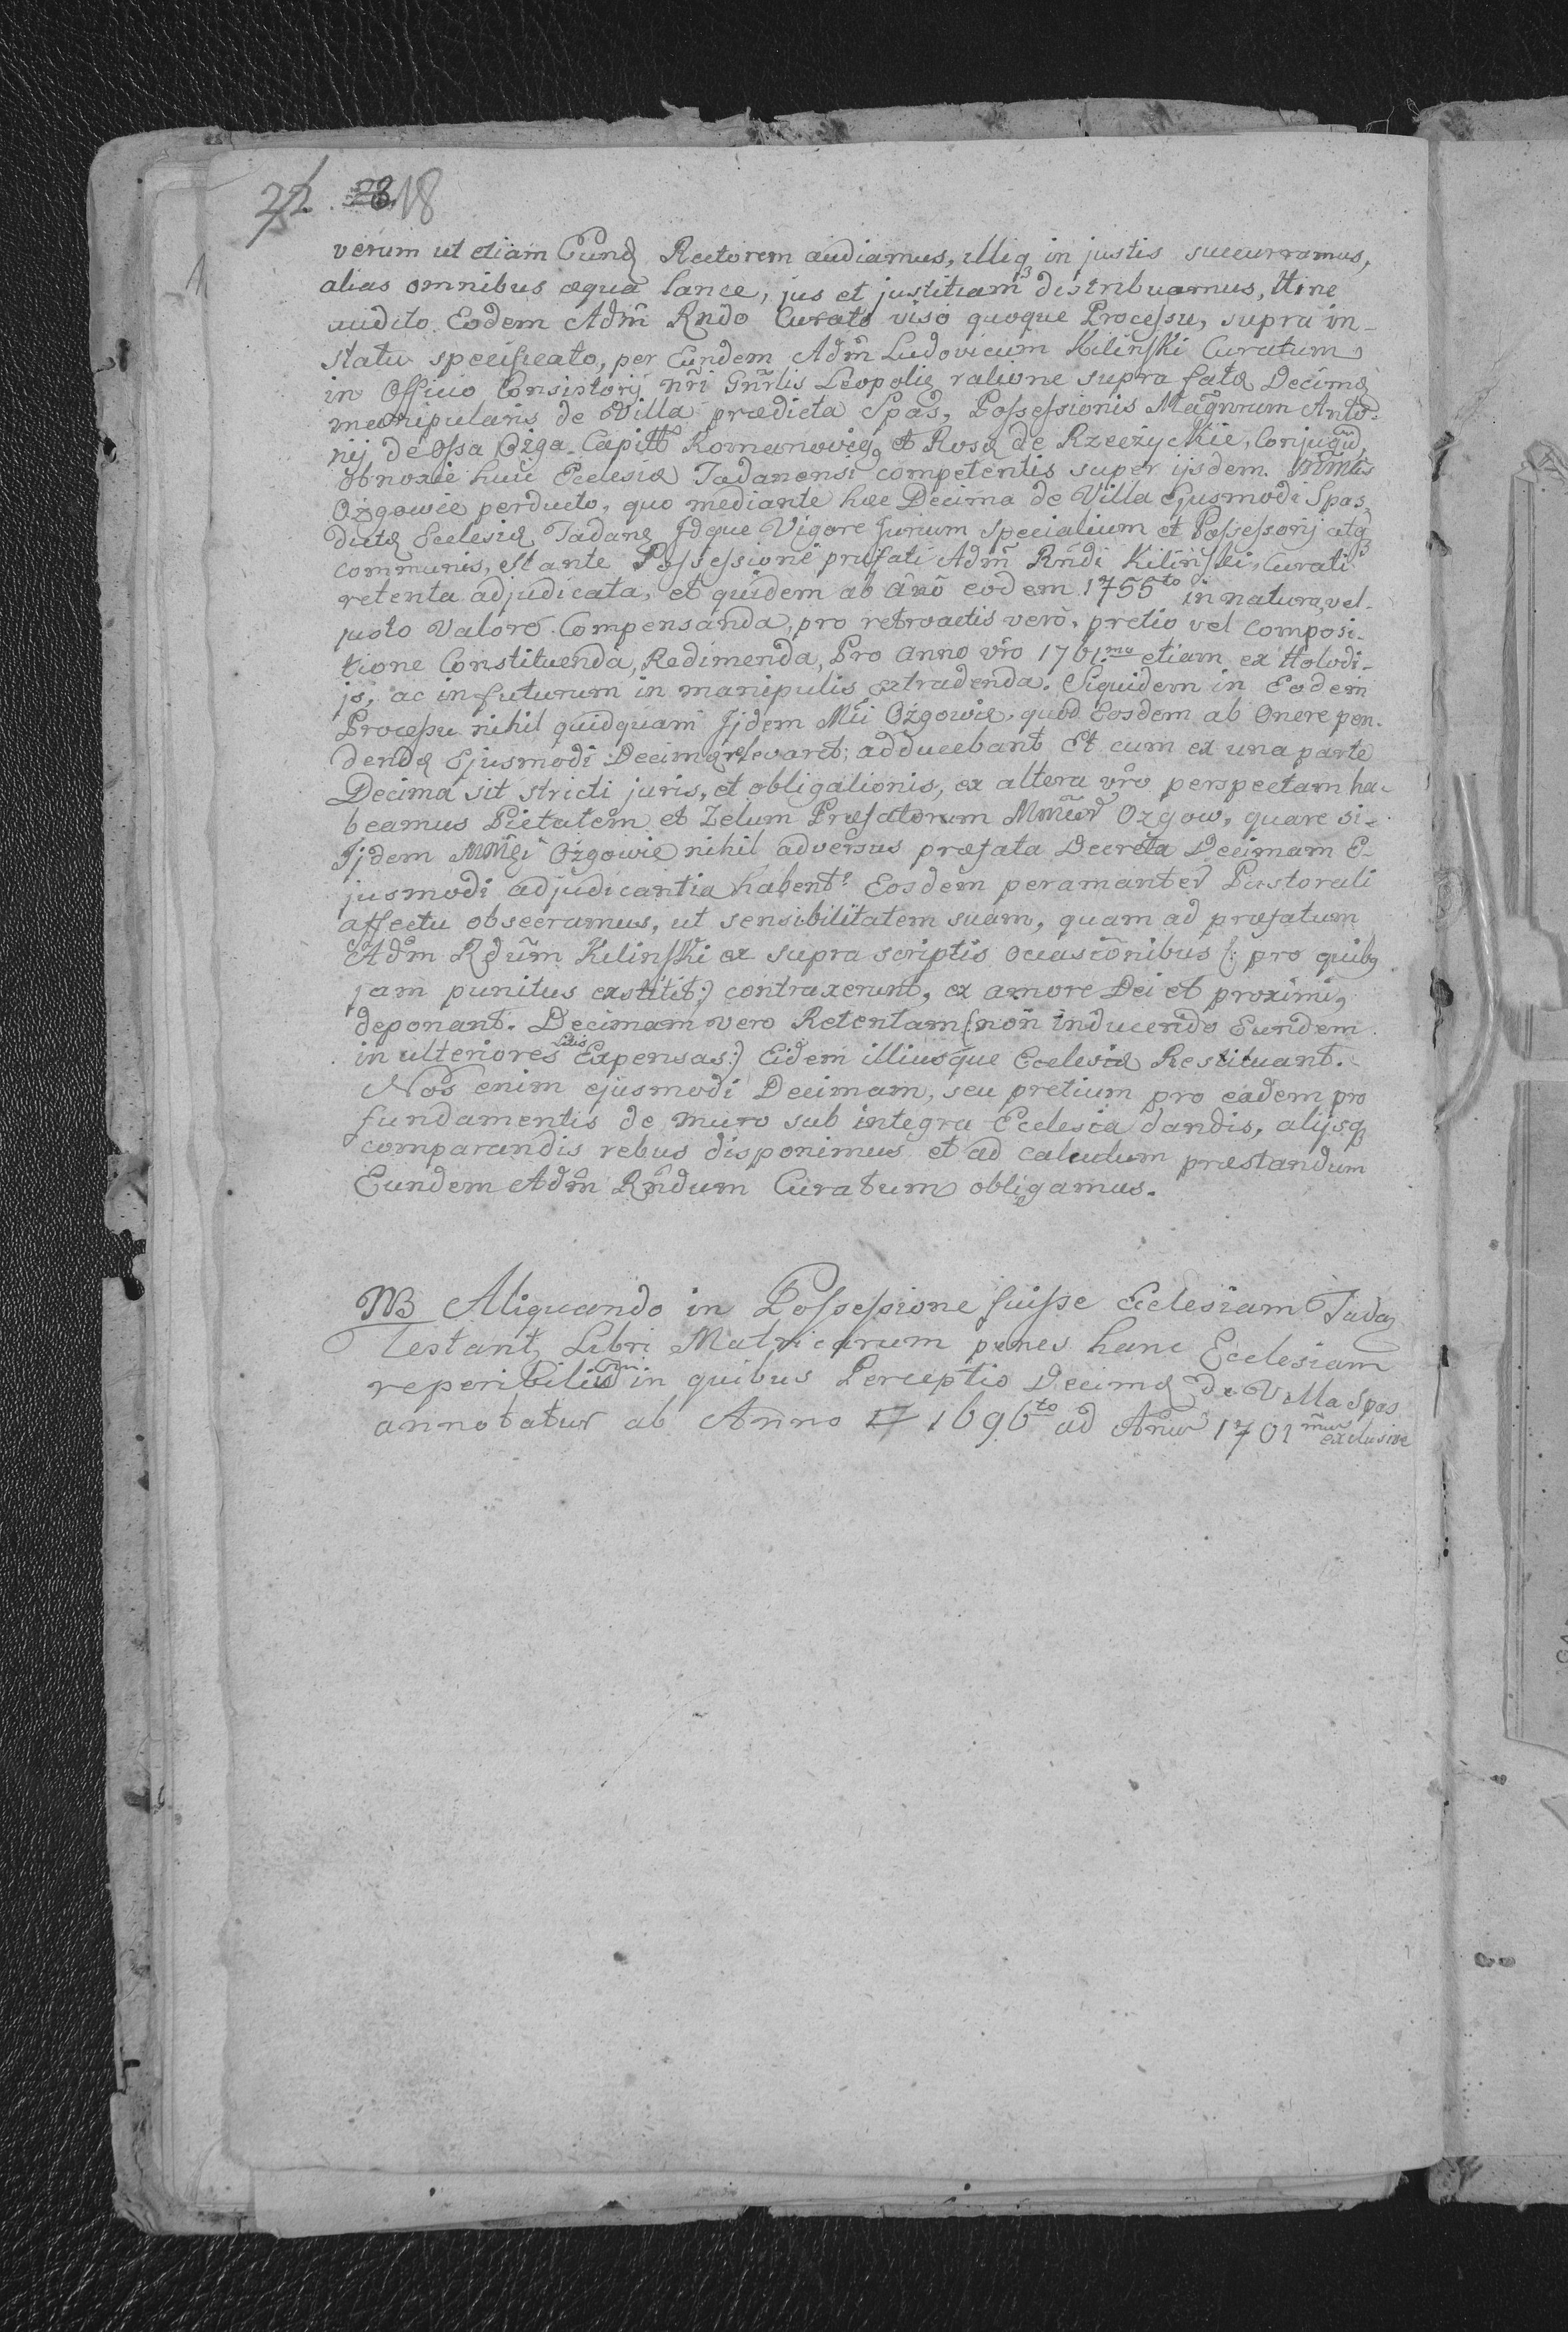 22. 28. 18
verum ut etiam Eund Rectorem audiamus, illiq3 in justis succurramus,
alias omnibus æqua lance, jus et justitiam distribuamus, Hinc
audito Eodem Adm̃ Rndo Curato viso quoque Processu, supra in
statu specificato, per Eundem Adm̃ Ludovicum Kilinski Curatum
in Officio Consistorij nr̃i Gnr̃lis Leopolię ratione supra fatæ Decimæ
manipularis de Villa prædicta Spas, Possessionis Magnorum Anto-
nij de Ossa Ożga Capitt Romanovię, et Rosæ de Rzeczyckie, Conjugũ,
obnoxie huic Ecclesiæ Jadanensi competentis super ijsdem
Ożgowie perducto, quo mediante hæc Decima de Villa Ejusmodi Spas,
dictæ Ecclesiæ Tadanę Idque Vigore Jurium Specialium et Possessorij atq3
communis, stante Possessione præfati Adm̃ Rñdi Kilinski, Curati
retenta adjudicata, et quidem ab año eodem 1755to in natura, vel
justo Valore Compensanda, pro retroactis verò, pretio vel composi-
tione Constituenda, Redimenda, Pro Anno vr̃o 1761mo etiam ex Holodi-
js, ac in futurum in manipulis extradenda. Siquidem in Eodem
Processu nihil quidquam Ijdem Mũi Ożgowie, quod Eosdem ab Onere pen-
dendæ Ejusmodi Decimæ relevaret, adducebant. Et cum ex una parte
Decima sit stricti juris, et obligationis, ex altera vr̃o perspectam ha-
beamus Pietatem et Zelum Præfatorum Ozgow, quare si
Ijdem Ożgowie nihil adversus præfata Decreta Decimam E-
jusmodi adjudicantia habent Eosdem peramanter Pastorali
affectu obsecramus, ut sensibilitatem suam, quam ad præfatum
Adm̃ Rdũm Kilinski ex supra scriptis occasionibus (: pro quib9
jam punitus exstitit :) contraxerunt, ex amore Dei et proximi,
deponant. Decimam vero Retentam (: non inducendo Eundem
in ulteriores litis Expensas :) Eidem illiusque Ecclesiæ Restituant.
Nos enim ejusmodi Decimam, seu pretium pro eadem pro
fundamentis de muro sub integra Ecclesia dandis, alijsq3
comparandis rebus disponimus et ad calculum præstandum
Eundem Adm̃ Rñdum Curatum obligamus.
NB Aliquando in Possessione fuisse Ecclesiam Tadaņ
testant, Libri Matricarum penes hanc Ecclesiam
reperibilium in quibus Perceptio Decimæ de Villa Spas
annotatur ab Anno 17 1696to ad Anũ 1701mũ exclusive